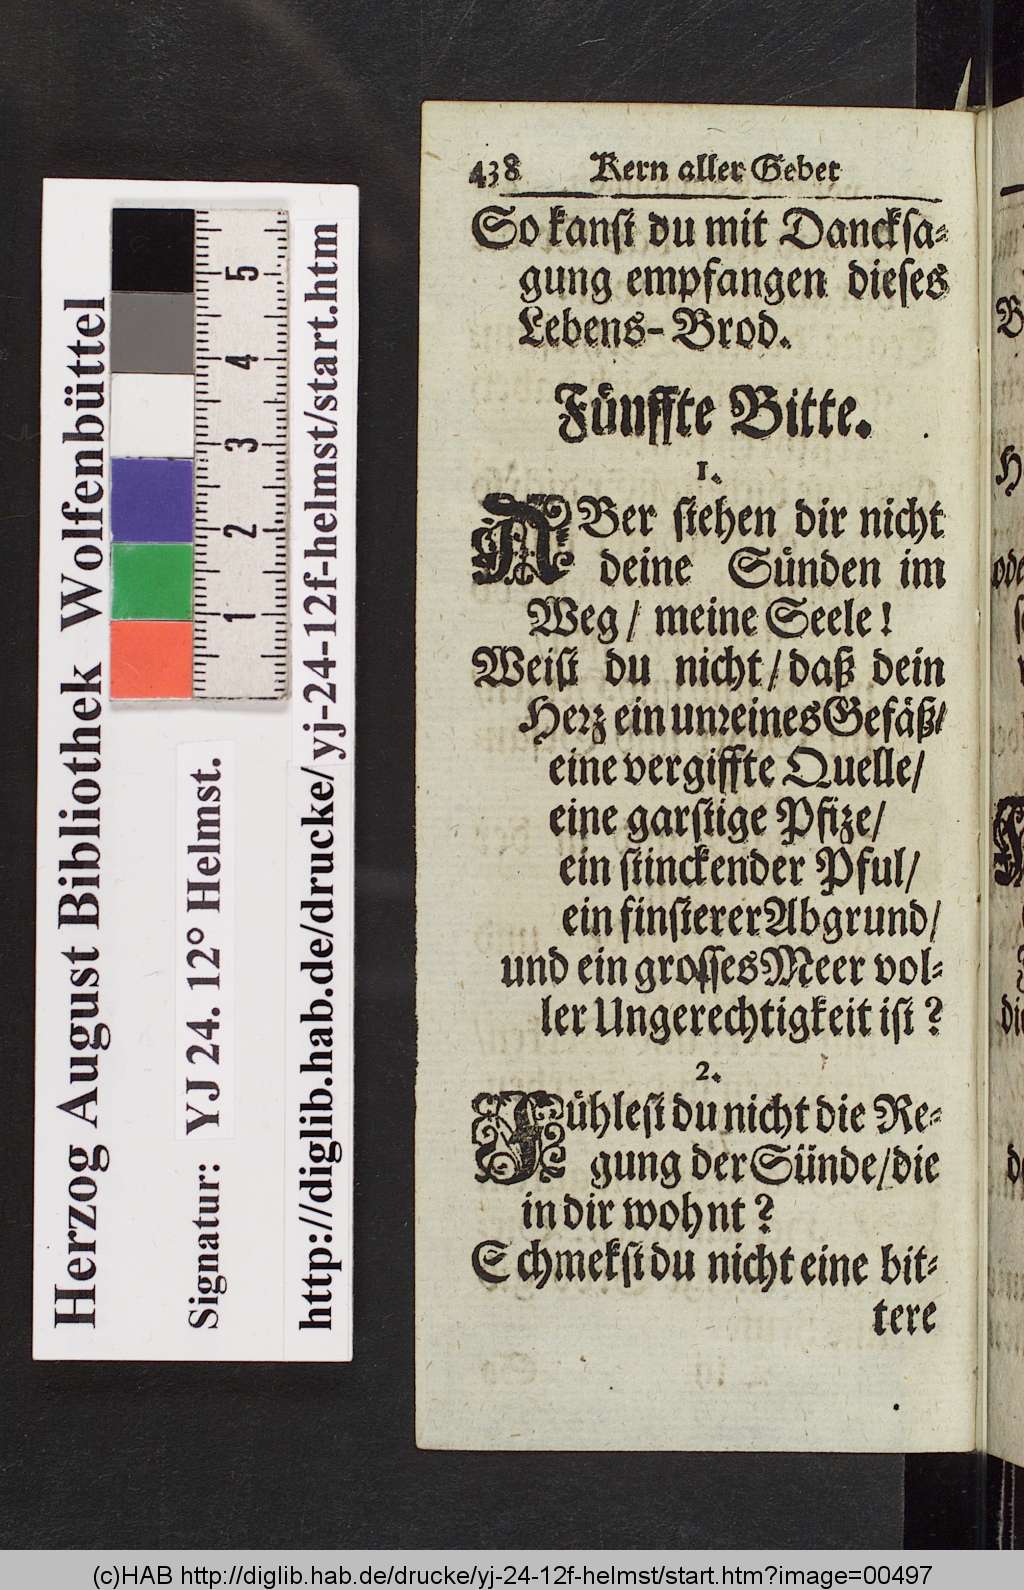 Herzog August Bibliothek Wolfenbüttel
Signatur: YJ 24. 12° Helmst.
http://diglib.hab.de/drucke/yj-24-12f-helmst/start.htm
5
4
3
2
1
438 Kern aller Gebet
So kanſt du mit Danckſa-
gung empfangen dieſes
Lebens-Brod.
Fünffte Bitte.
1.
ABer ſtehen dir nicht
deine Sünden im
Weg / meine Seele!
Weiſt du nicht / daß dein
Herz ein unreines Gefäß/
eine vergiffte Quelle/
eine garſtige Pfize/
ein ſtinckender Pful/
ein finſterer Abgrund/
und ein groſſes Meer vol-
ler Ungerechtigkeit iſt?
2.
Fühleſt du nicht die Re-
gung der Sünde/die
in dir wohnt?
Schmekſt du nicht eine bit-
tere
(c)HAB http://diglib.hab.de/drucke/yj-24-12f-helmst/start.htm?image=00497